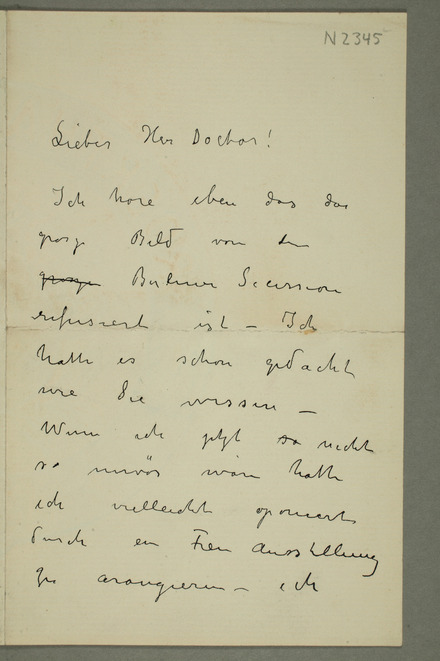 N2345
Lieber Herr Doctor!
Ich höre eben das das
grosse Bild von den
grosse Berliner Secession
refusiert ist – Ich
hatte es schon gedacht
wie Sie wissen –
Wenn ich jetzt so nicht
so nervös wäre hatte
ich vielleicht oponiert
durch en Freu Ausstellung
zu arangieren – ich